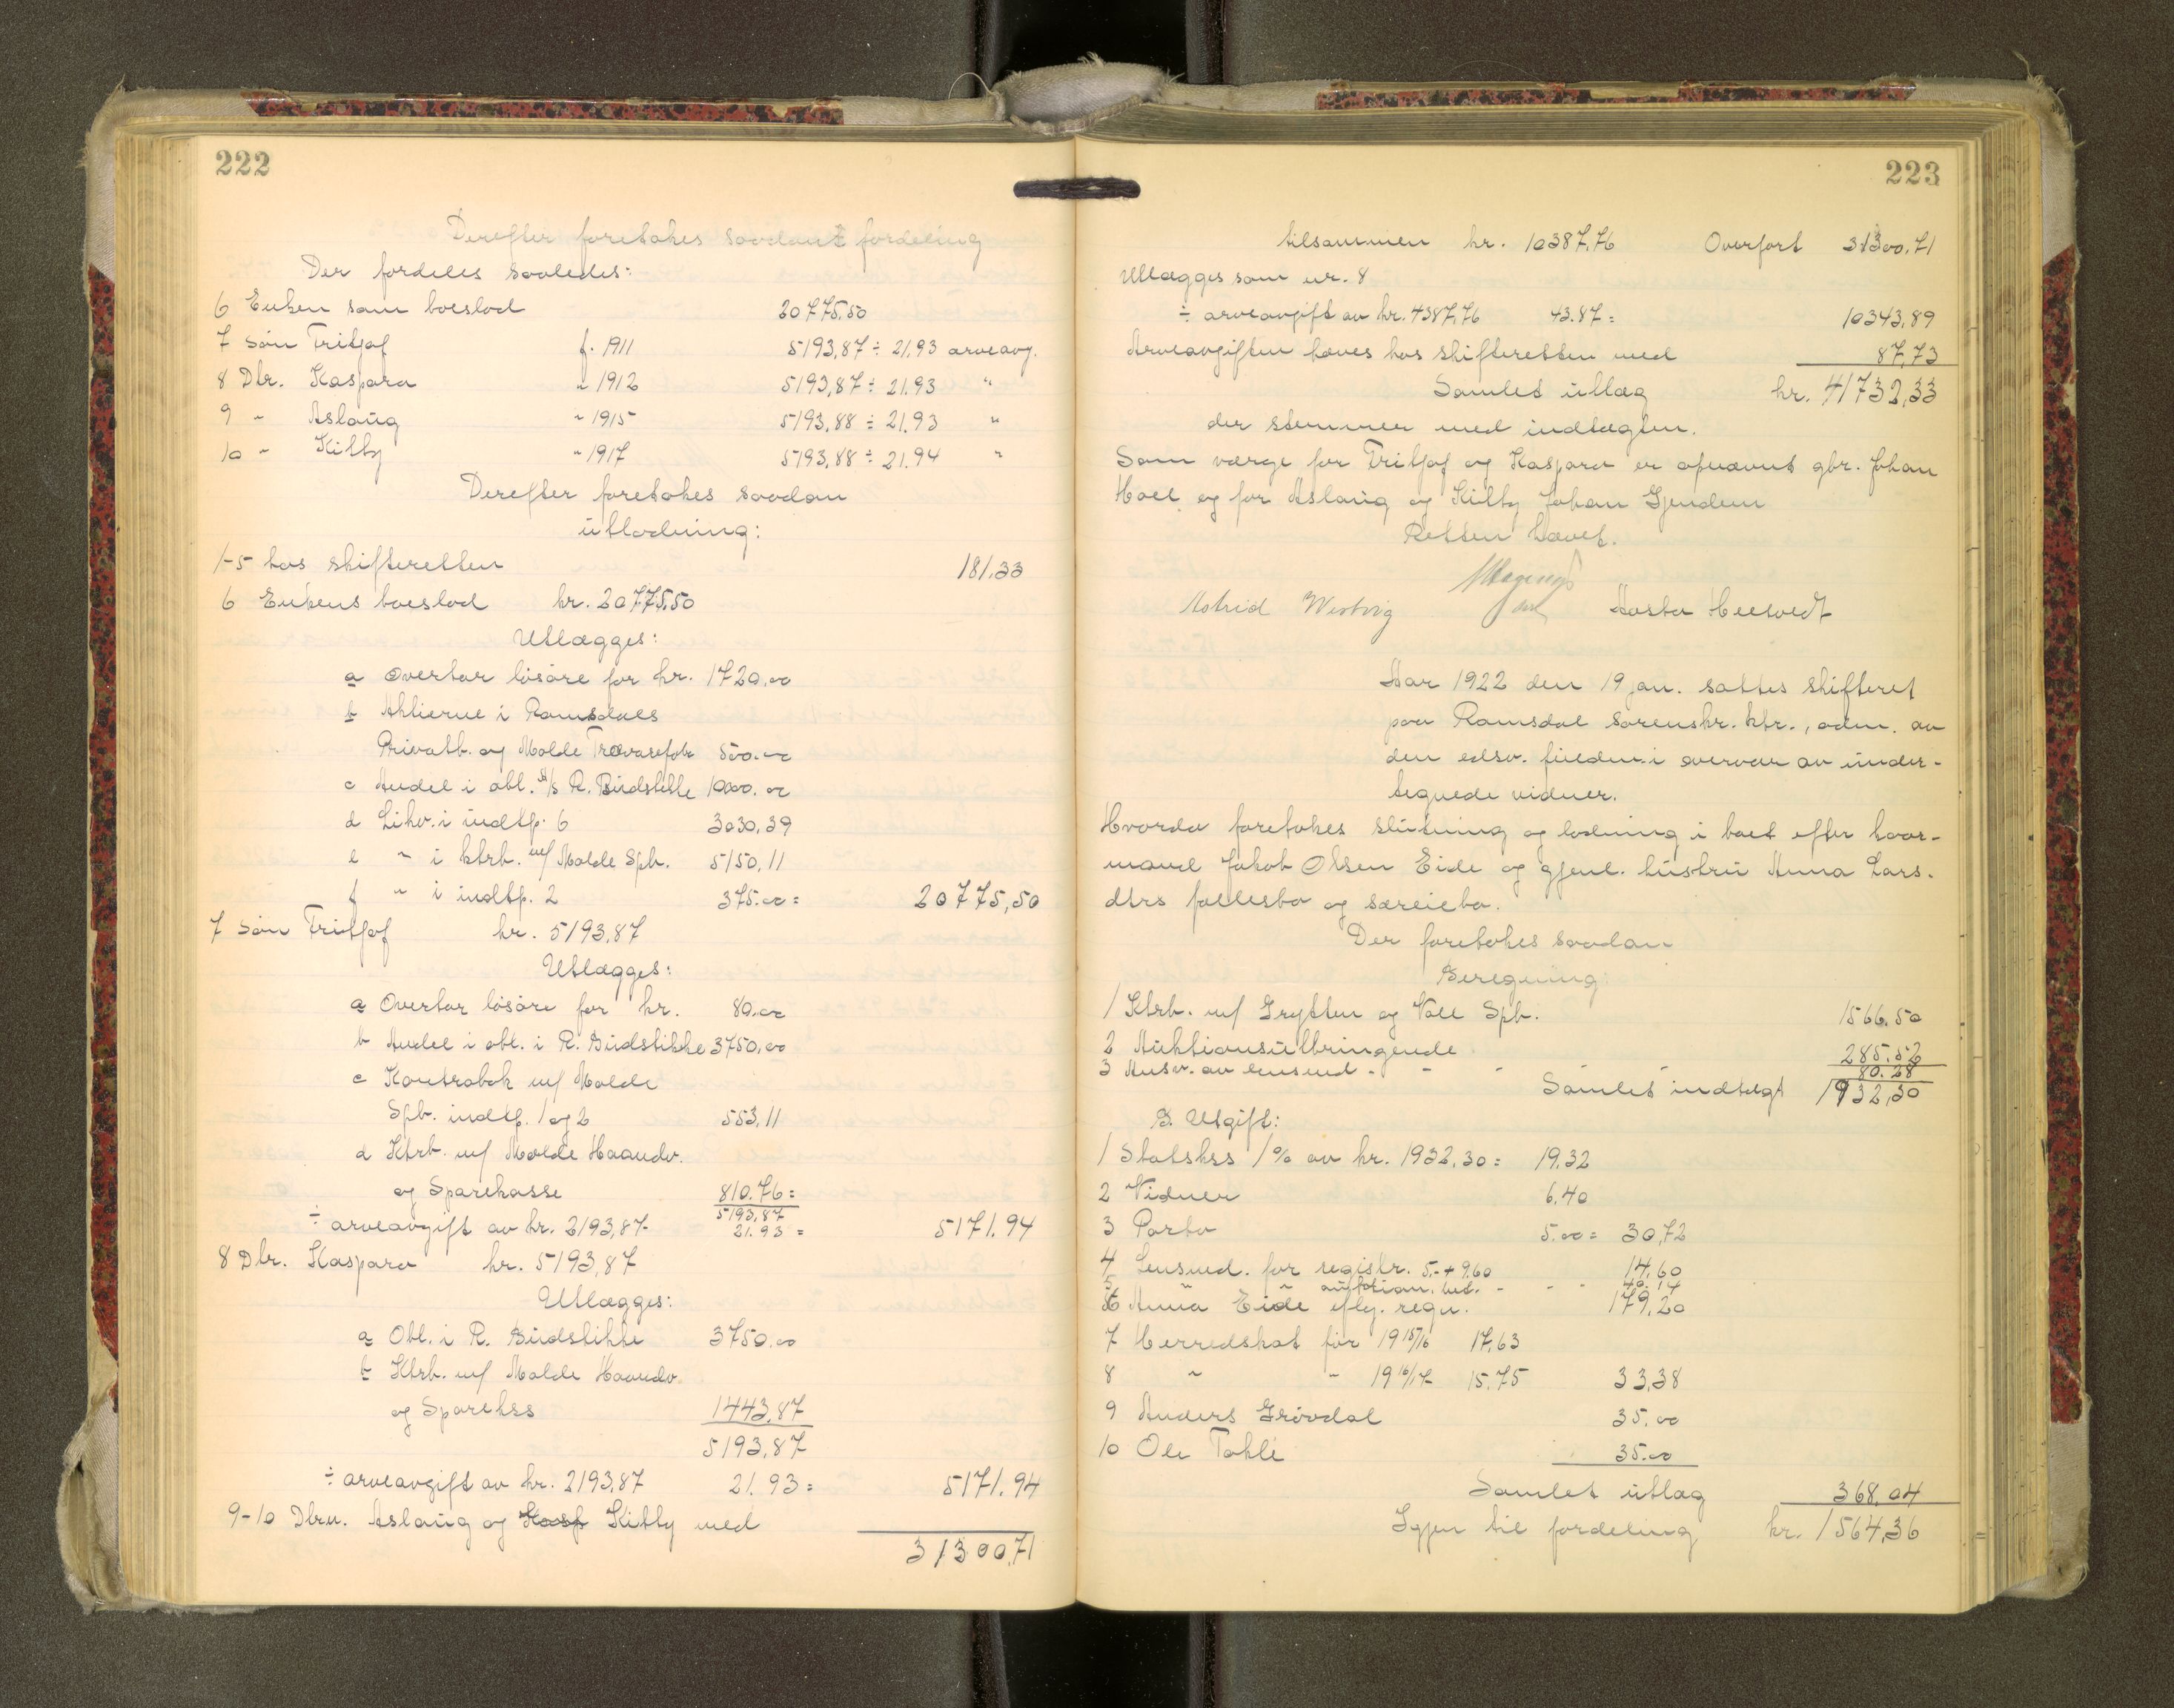 222
Derefter foretakes saadant fordeling
Der fordeles saaledes:
6 Enken som boeslod 20775,50
7 Søn Fritjof f. 1911 5193,87 ÷ 21,93 arveavg.
8 Dtr. Kaspara " 1912 5193,87 ÷ 21.93 "
9 " Aslaug " 1915 5193,88 ÷ 21.93 "
10 " Kitty " 1917 5193.88 ÷ 21.94 "
Derefter foretakes saadan
utlodning:
1-5 hos skifteretten 181,33
6 Enkens boeslod kr. 20775,50
Utlægges:
a Overtar løsøre for kr. 1720.00
b Aktierne i Romsdals
Privatb. og Molde Trævarefabr 500.00
c Andel i obl. A/S R. Budstikke 10000.00
d Likv. i indtp. 6 3030,39
e " i ktrb. m/ Molde Spb. 5150,11
f " i indtp. 2 375.00 = 20775,50
7 Søn Fritjof kr. 5193,87
Utlægges:
a Overtar løsøre for kr. 80.00
b Andel i obl. i R. Budstikke 3750,00
c Kontrabok m/ Molde
Spb. indtp. 1 og 2 553,11
d Ktrb. m/ Molde Haandv.
og Sparekasse 810.76 =
5193,87
÷ arveavgift av kr. 2193,87 21.93 = 5171.94
8 Dtr. Kaspara kr. 5193,87
Utlægges:
a Obl. i R. Budstikke 3750.00
b Ktrb. m/ Molde Haandv.
og Sparekss 1443,87
5193,87
÷ arveavgift av kr. 2193,87 21.93 = 5171.94
9-10 Dtrn. Aslaug og Kasp Kitty med
31300,71
223
tilsammen kr. 10387,76 Overført 31300,71
Utlægges som nr. 8
÷ arveavgift av kr. 4387,76 43.87 = 10343,89
Arveavgiften hæves hos skifteretten med 87,73
Samlet utlæg kr. 41732,33
der stemmer med indtægten.
Som værge for Fritjof og Kaspara er opnævnt gbr. Johan
Hoel og for Aslaug og Kitty Johan Gjendem
Retten hævet.
Astrid Westvig Aasta Heesvedt
Aar 1922 den 19 jan. sattes skifteret
paa Romsdal sorenskr. ktr., adm. av
den edsv. fuldm. i overvær av under-
tegnede vidner.
Hvorda foretokes slutning og lodning i boet efter kaar-
mand Jakob Olsen Eide og gjenl. hustru Anna Lars-
dtrs fællesbo og særeiebo.
Der foretokes saadan
Beregning:
1 Ktrb. m/ Grytten og Voll Spb. 1566.50
2 Auktionsutbringende 285,52
3 Ansv. av lensmd - - - - 80.28
Samlet indtægt 1932,30
B. Utgift:
1 Statskss 1% av kr. 1932,30 = 19,32
2 Vidner 6.40
3 Porto 5.00 = 30,72
4 Lensmd. for registr. 5.- + 9.60 14,60
5 " " auktion. - - - 40.14
6 Anna Eide eftg. regn. 179,20
7 Herredskat for 1915/16 17,63
8 " " 1916/17 15.75 33,38
9 Anders Grøvdal 35.00
10 Ole Tokle 35.00
Samlet utlæg 368,04
Igjen til fordeling kr. 1564,36